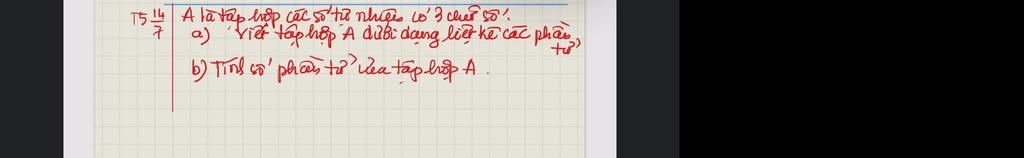 T5 14/7 A là tập hợp các số tự nhiên có 3 chữ số.
a) Viết tập hợp A dưới dạng liệt kê các phần
tử
b) Tính số phần tử của tập hợp A.